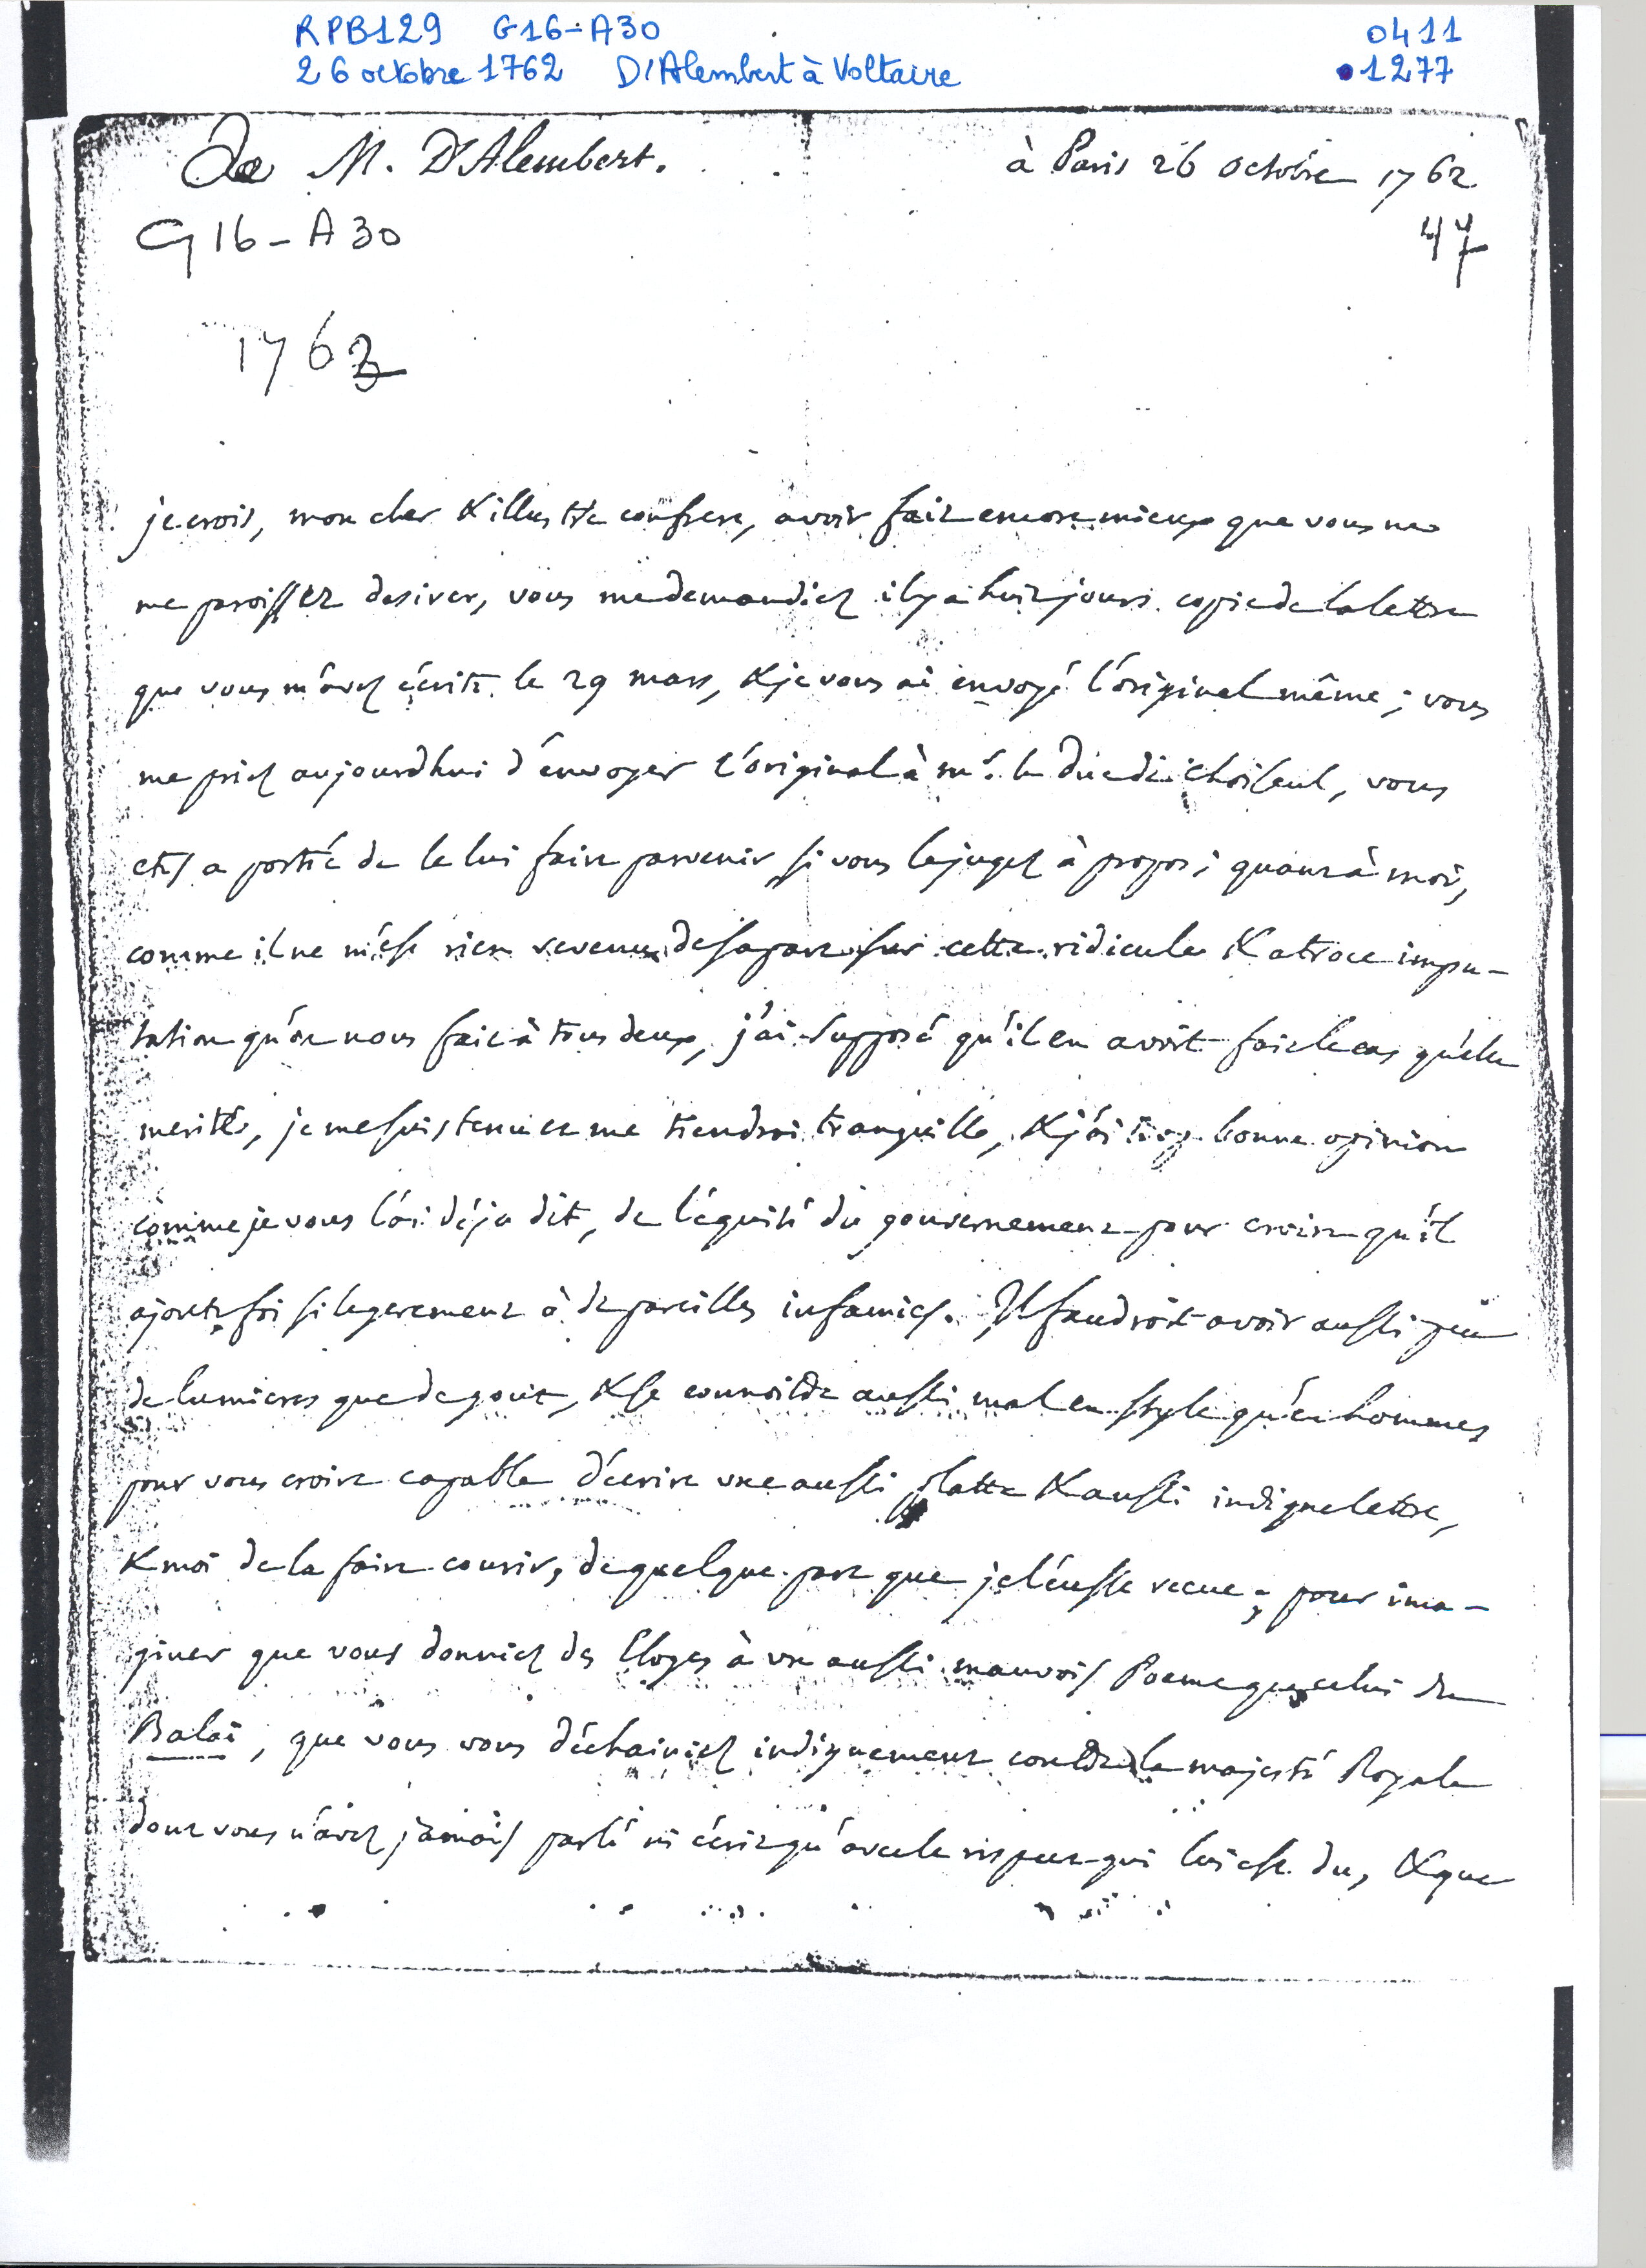 RPB129 G16-A30 0411
26 octobre 1762 D'Alembert à Voltaire 1277
De M. D'Alembert. à Paris 26 octobre 1762
G16-A30 47
1762
je crois, mon cher & illustre confrere, avoir fait encore mieux que vous ne
me paroissez desirer, vous me demandiez il y a huit jours copie de la lettre
que vous m'avez écrite le 29 mars, & je vous ai envoyé l'original même; vous
me priez aujourdhui d'envoyer l'original à mr. le Duc de Choiseul, vous
etes a portée de le lui faire parvenir si vous le jugez à propos; quant à moi,
comme il ne m'est rien revenu de sa part sur cette ridicule & atroce impu-
tation qu'on nous fait à tous deux, j'ai supposé qu'il en avoit fait le cas qu'elle
merite, je me suis tenu et me tiendrai tranquille, & j'ai trop bonne opinion
comme je vous l'ai déja dit, de l'équité du gouvernement pour croire qu'il
ajoute foi si legerement à de pareilles infamies. Il faudroit avoir aussi peu
de lumieres que de gout, & se connoitre aussi mal en style qu'en hommes
pour vous croire capable d'écrire une aussi platte & aussi indigne lettre,
& moi de la faire courir, de quelque part que je l'eusse recue; pour ima-
giner que vous donniez des Eloges à un aussi mauvais Poeme que celui du
Balai, que vous vous déchainiez indignement contre la majesté Royale
dont vous n'avez jamais parlé ni écrit qu'avec le respect qui lui est du, & que